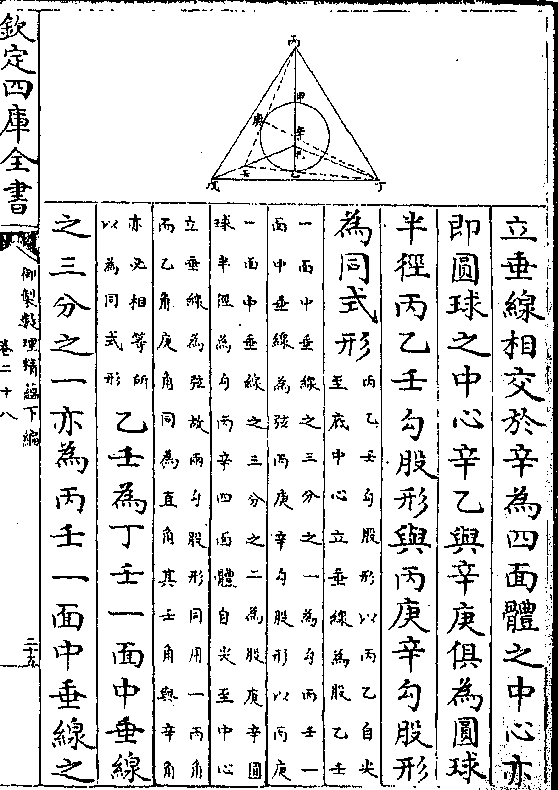 丙
甲
庚
辛
戊
壬
乙
丁
立垂線相交於辛為四面體之中心亦
即圓球之中心辛乙與辛庚俱為圓球
半徑丙乙壬勾股形與丙庚辛勾股形
為同式形
丙乙壬勾股形以丙乙自尖
至底中心立垂線為股乙壬
一面中垂線之三分之一為勾丙壬一
面中垂線為弦丙庚辛勾股形以丙庚
一面中垂線之三分之二為股庚辛圓
球半徑為勾丙辛四面體自尖至中心
立垂線為弦故兩勾股形同用一丙角
而乙角庚角同為直角其壬角與辛角
亦必相等所
以為同式形
乙壬為丁壬一面中垂線
之三分之一亦為丙壬一面中垂線之
欽定四庫全書
御製數理精蘊下編
卷二十八